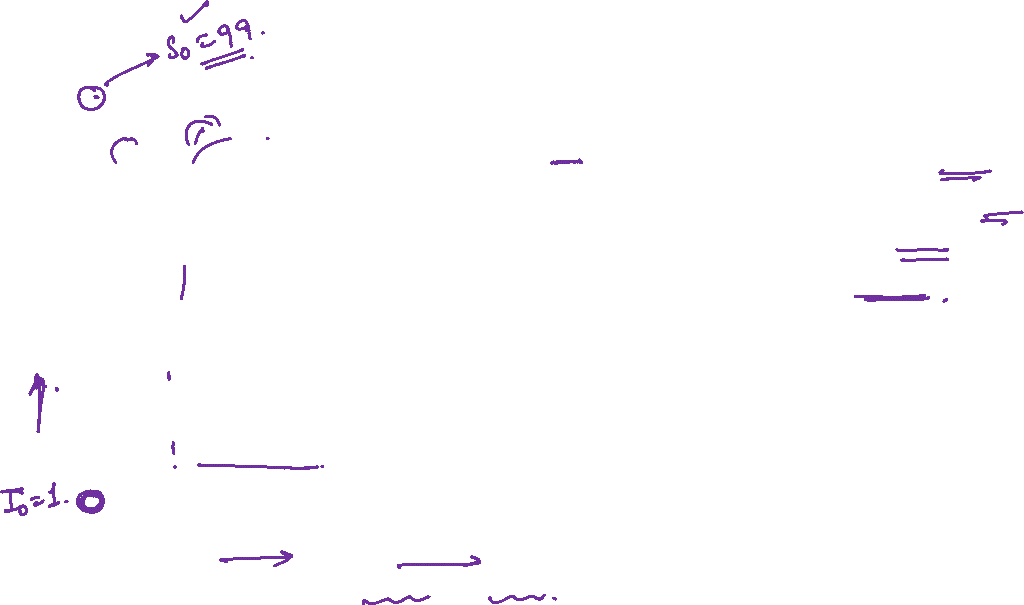 S₀ = 99.
I₀ = 1.